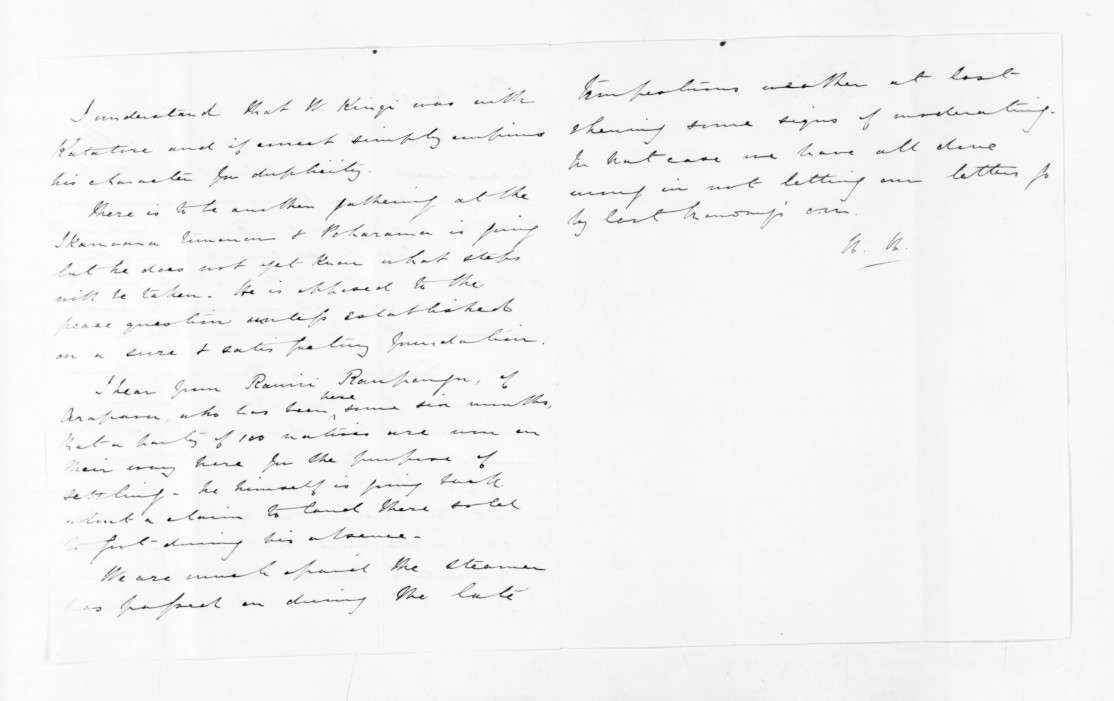 I understand that W. Kingi was with
Katatore and if correct simply confirms
his character for duplicity.
There is to be another gathering at the
Ikamoana & Poharama is going
but he does not yet know what steps
will be taken. He is opposed to the
peace question unless established
on a sure & satisfactory foundation.
I hear from Rawiri of
Arapawa, who has been here some six months,
that a party of 100 natives are now on
their way here for the purpose of
settling - he himself is going back
about a claim to land there sold
to Govt during his absence -
We are much afraid the steamer
has passed on during the late
tempestuous weather at last
shewing some signs of moderating.
In that case we have all done
wrong in not letting our letters go
by last overland